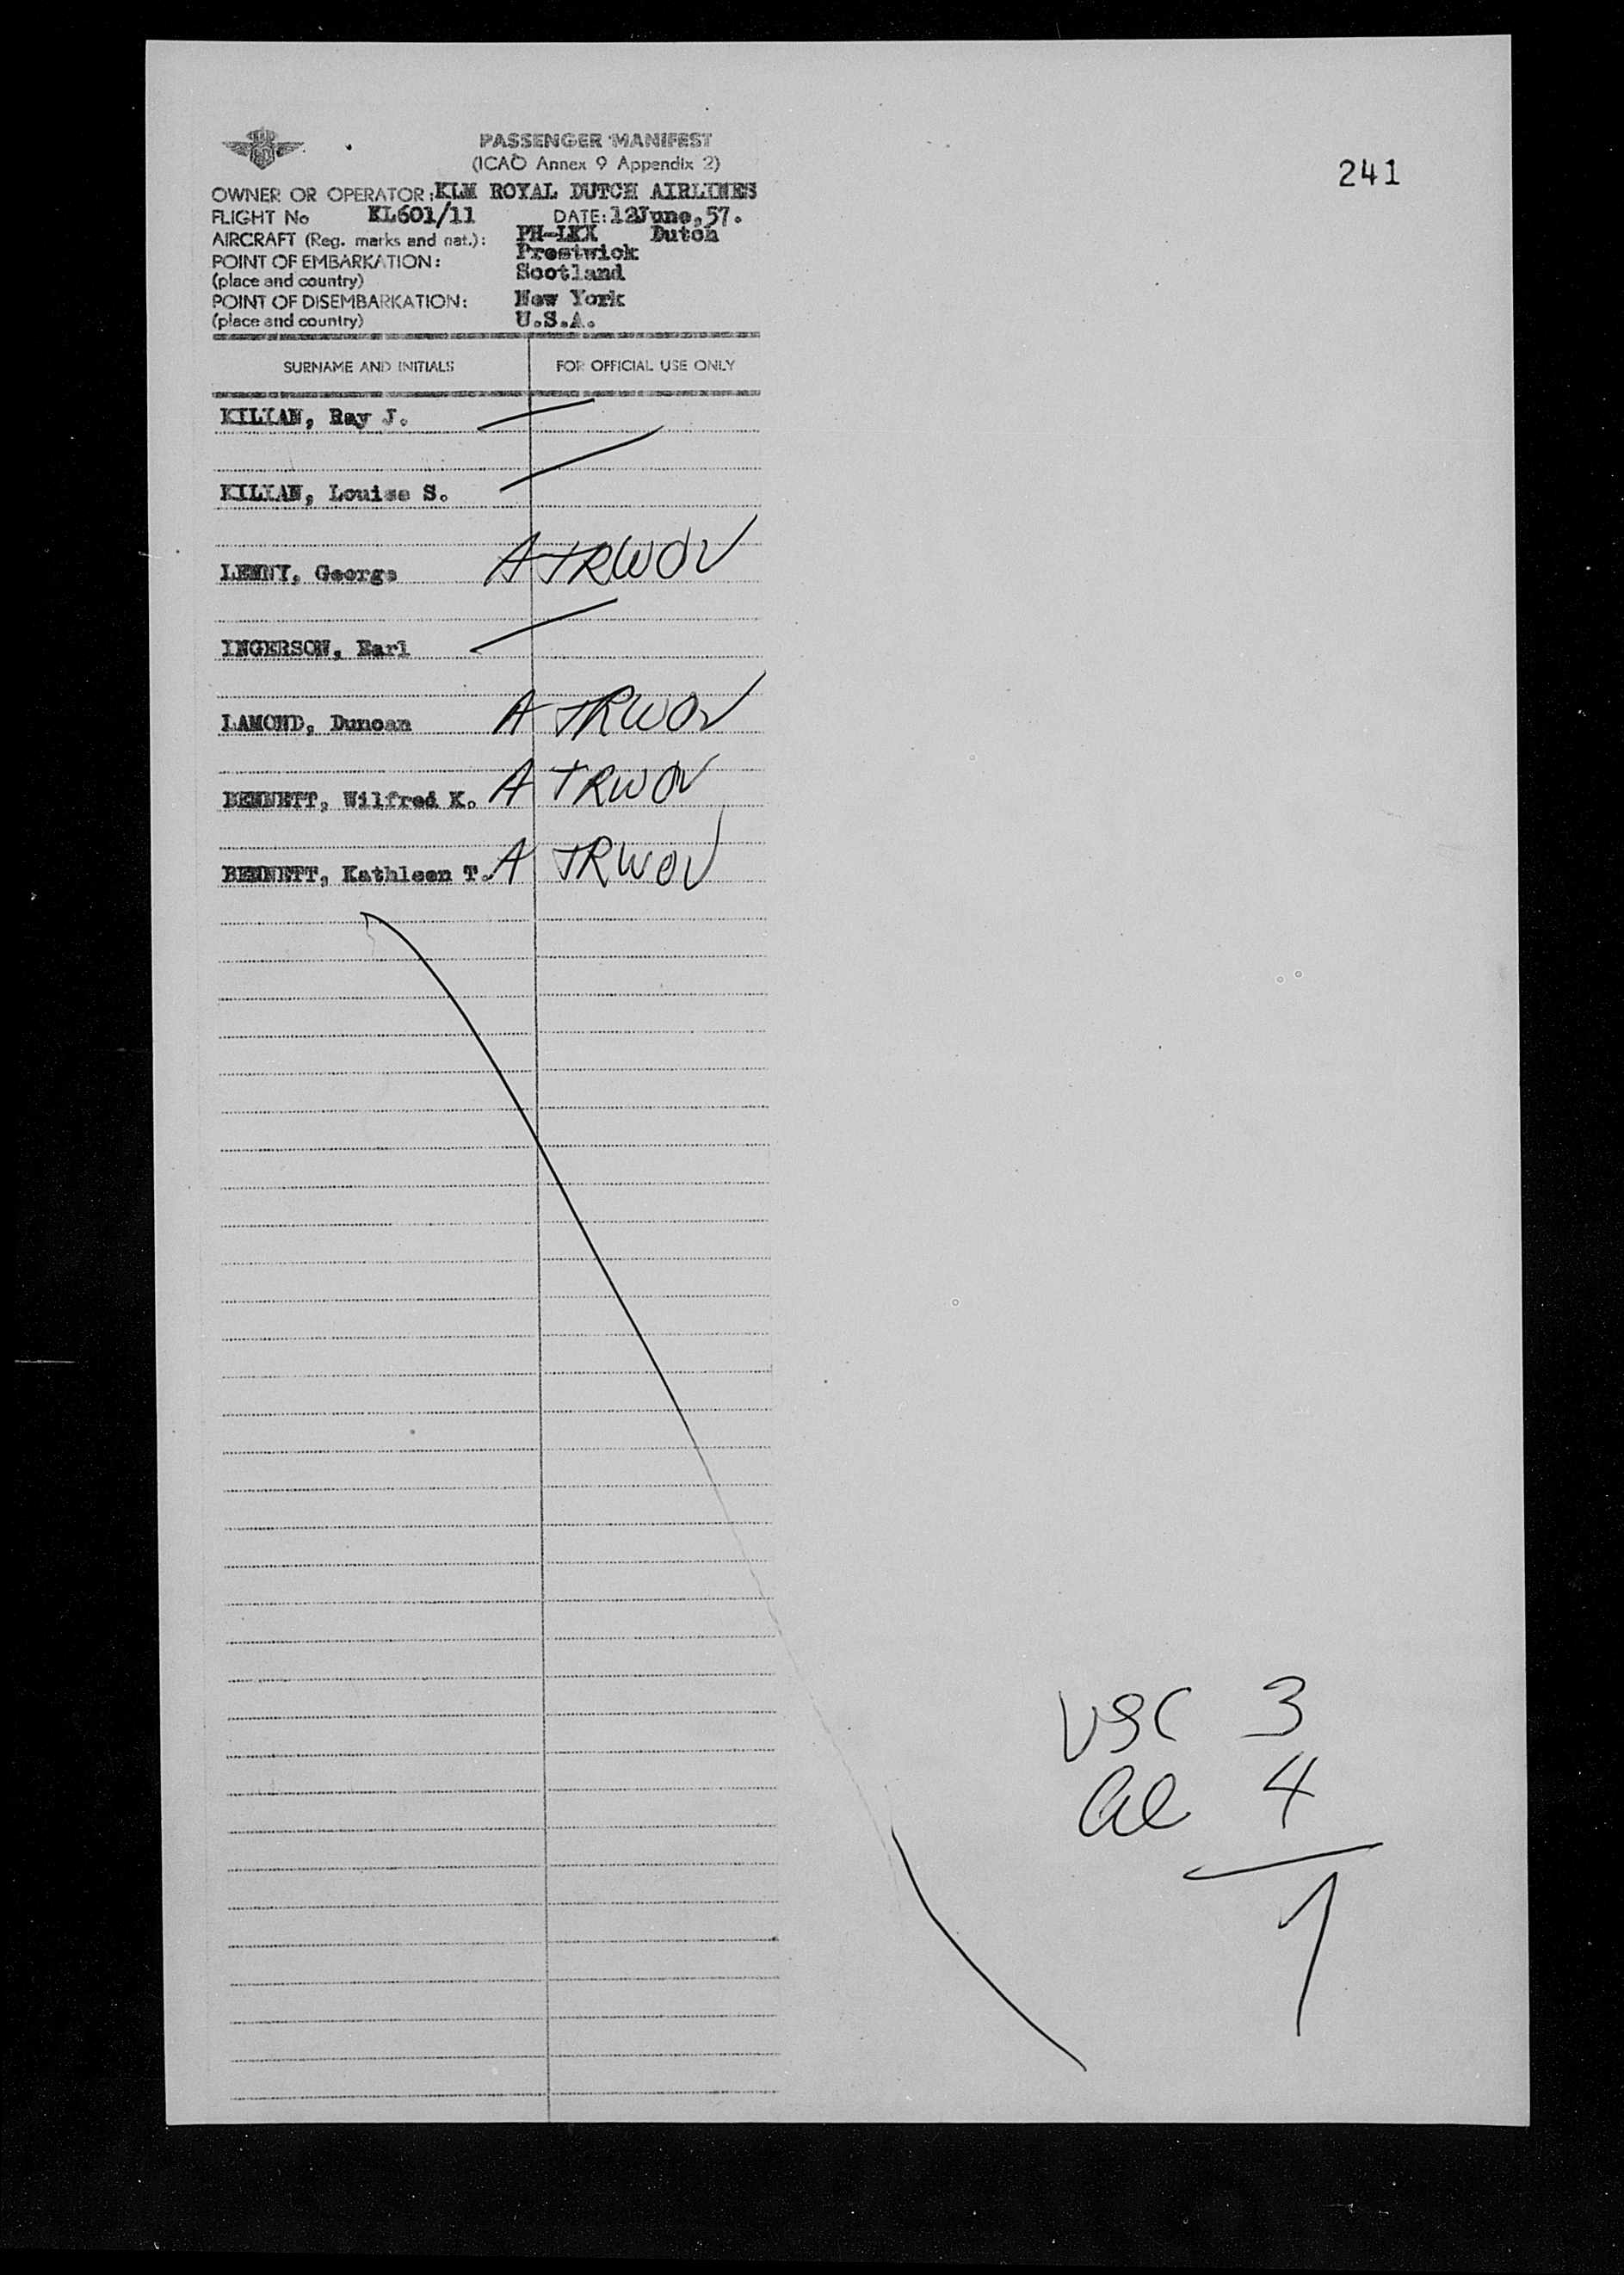 241
PASSENGER MANIFEST
(ICAO Annex 9 Appendix 2)
OWNER OR OPERATOR: KLM ROYAL DUTCH AIRLINES
FLIGHT No KL601/11 DATE: 12June,57.
AIRCRAFT (Reg. marks and nat.): PH-LKX Dutch
POINT OF EMBARKATION: Prestwick
(place and country) Scotland
POINT OF DISEMBARKATION: New York
(place and country) U.S.A.
SURNAME AND INITIALS FOR OFFICIAL USE ONLY
KILIAN, Ray J.
KILIAN, Louise S.
LENNY, George A TRWOV
INGERSON, Earl
LAMOND, Duncan A TRWOV
BENNETT, Wilfred K. A TRWOV
BENNETT, Kathleen T. A TRWOV
USC 3
al 4
7